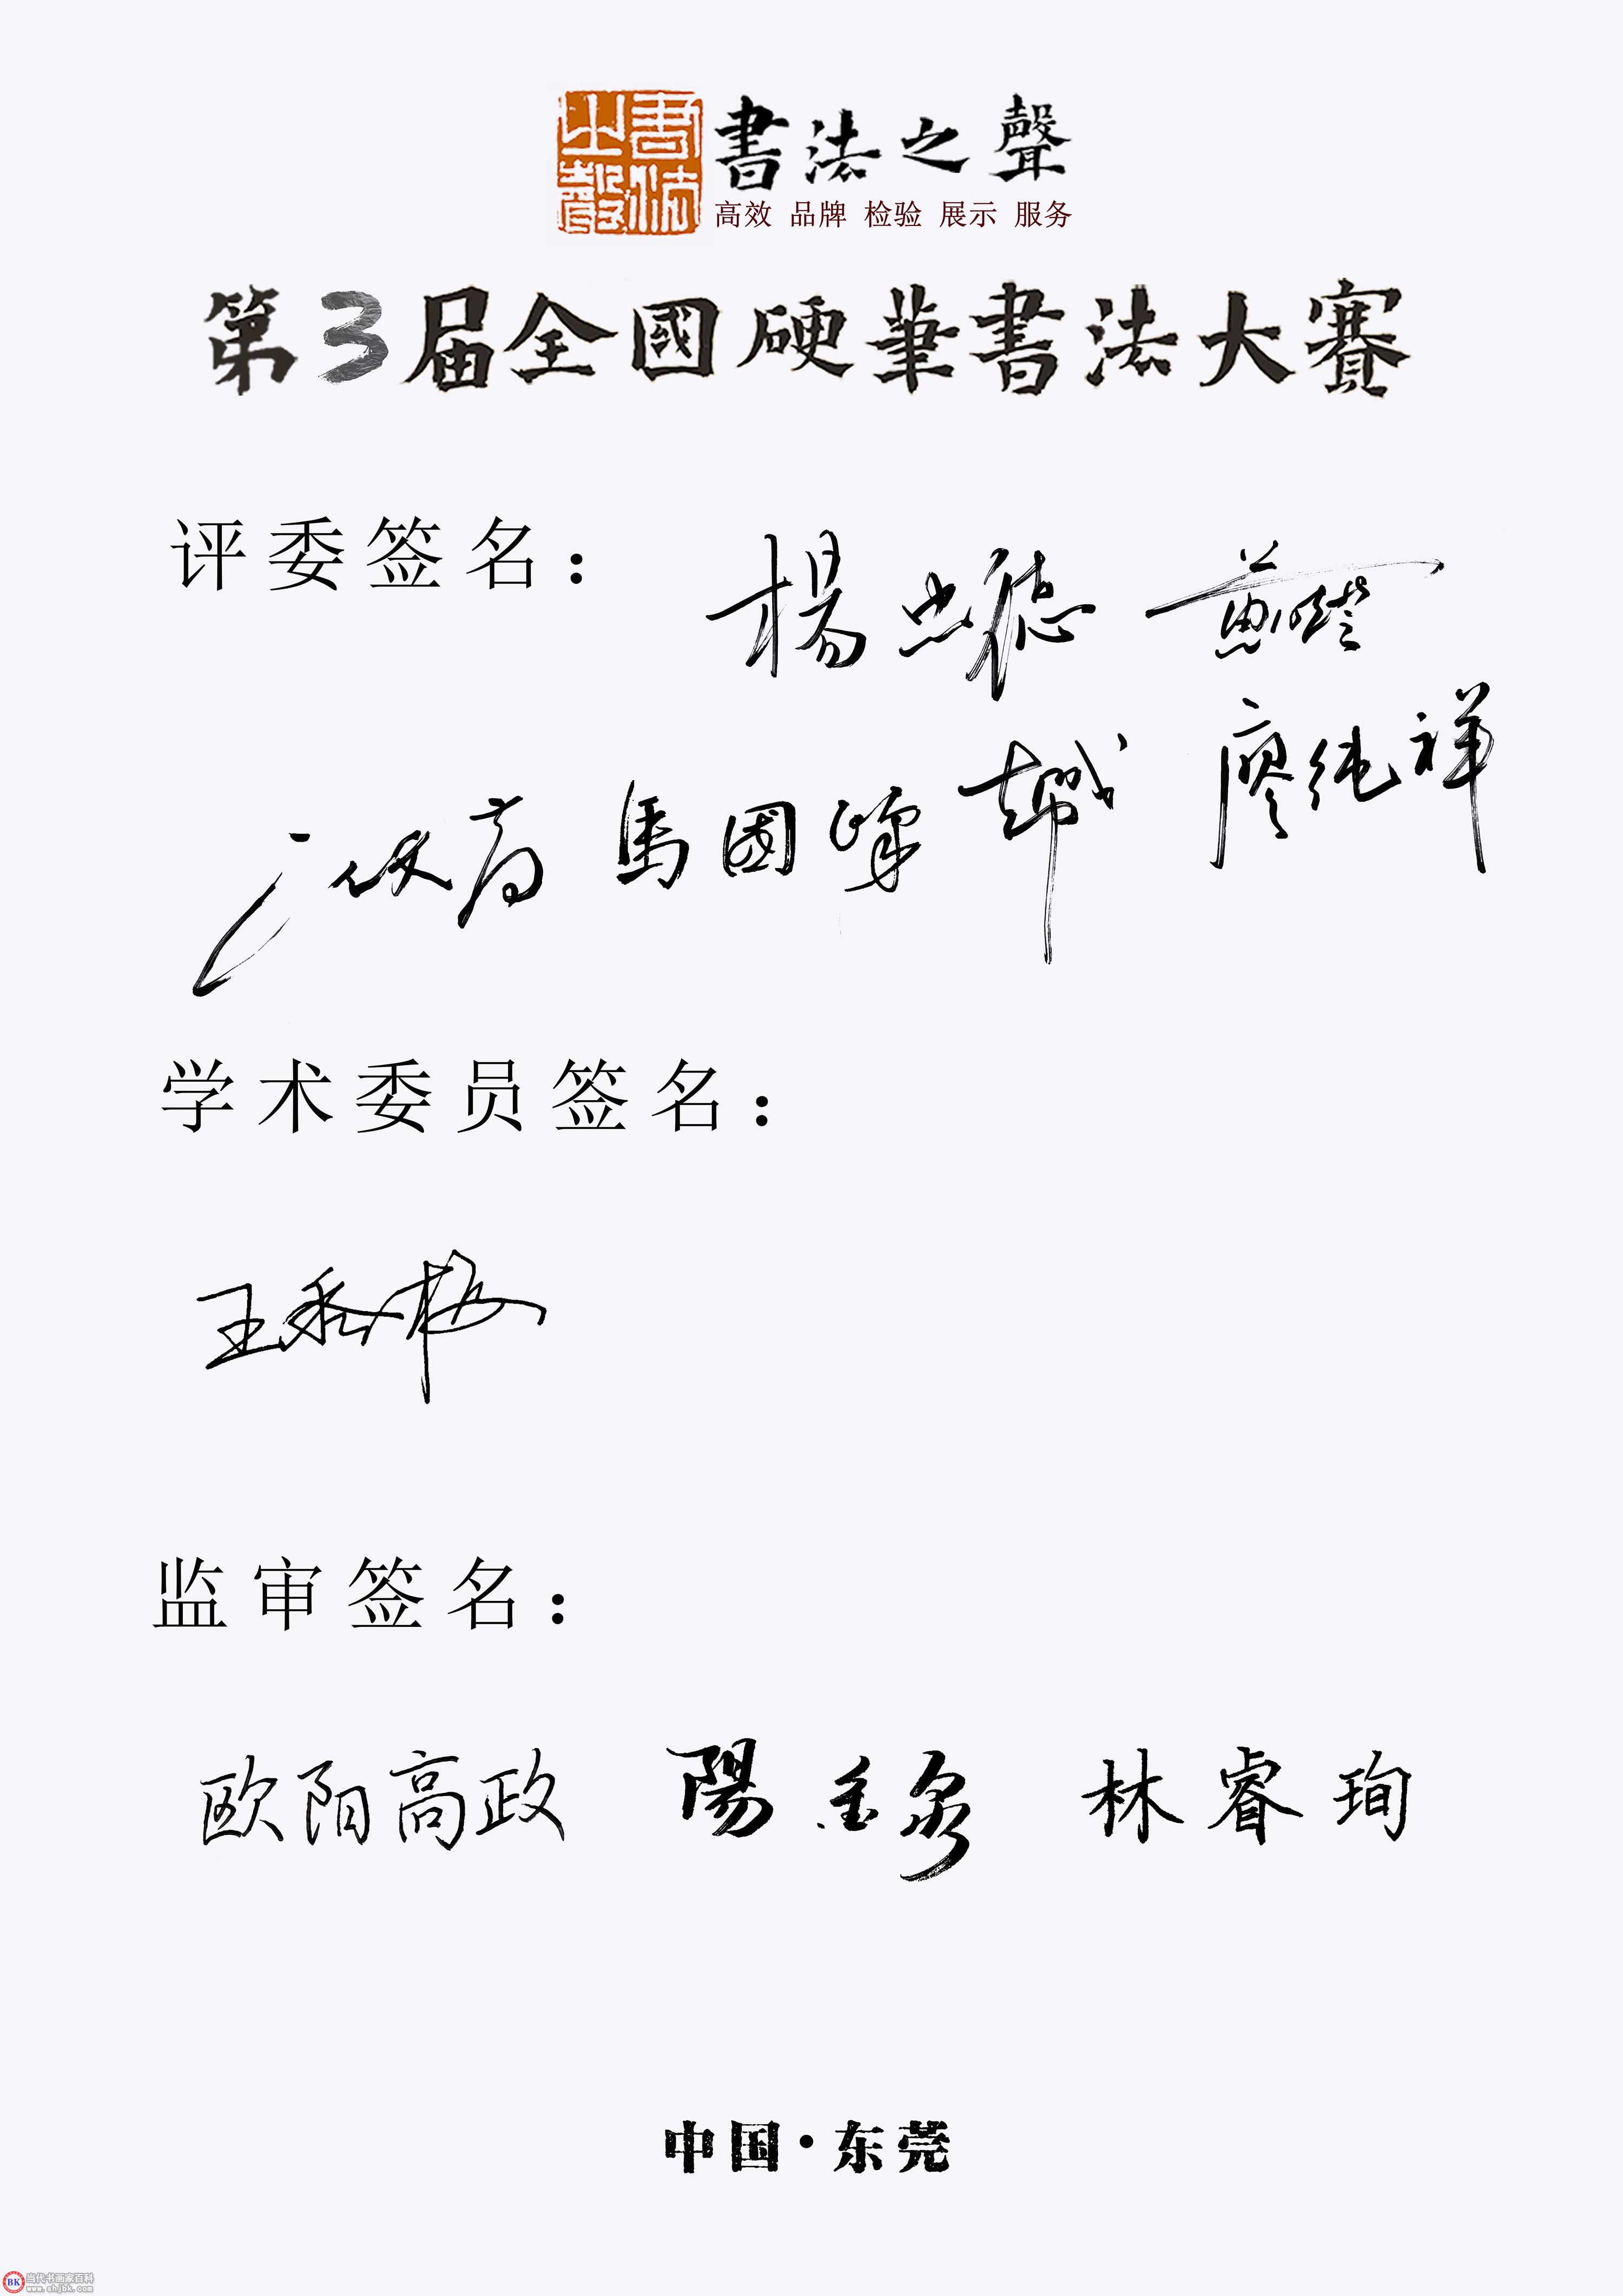 書法之聲
書法之聲
高效 品牌 检验 展示 服务
第3届全國硬筆書法大賽
评委签名：
楊忠德
廖纯祥
馬國峰
学术委员签名：
王香梅
监审签名：
欧阳高政 陽金泉 林睿珣
中国·东莞
BK 当代书画家百科
www.shjbk.com